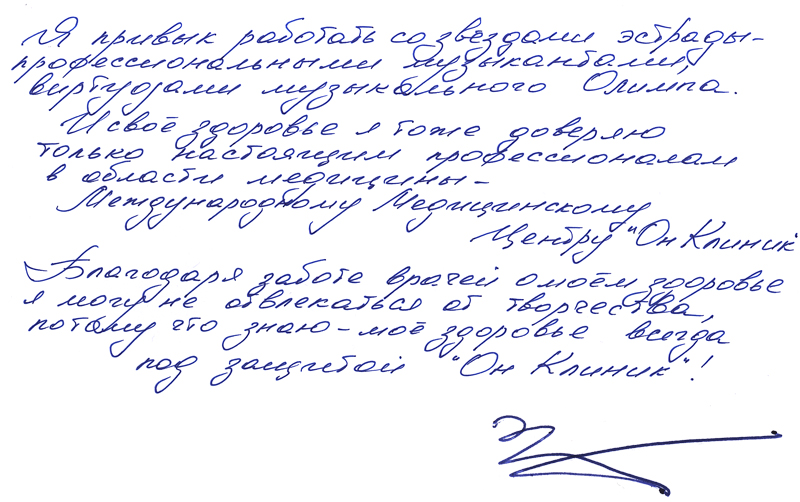 Я привык работать со звёздами эстрады-
профессиональными музыкантами,
виртуозами музыкального Олимпа.
И своё здоровье я тоже доверяю
только настоящим профессионалам
в области медицины-
Международному Медицинскому
Центру "Он Клиник
Благодаря заботе врачей о моём здоровье
я могу не отвлекаться от творчества,
потому что знаю-моё здоровье всегда
под защитой "Он Клиник"!